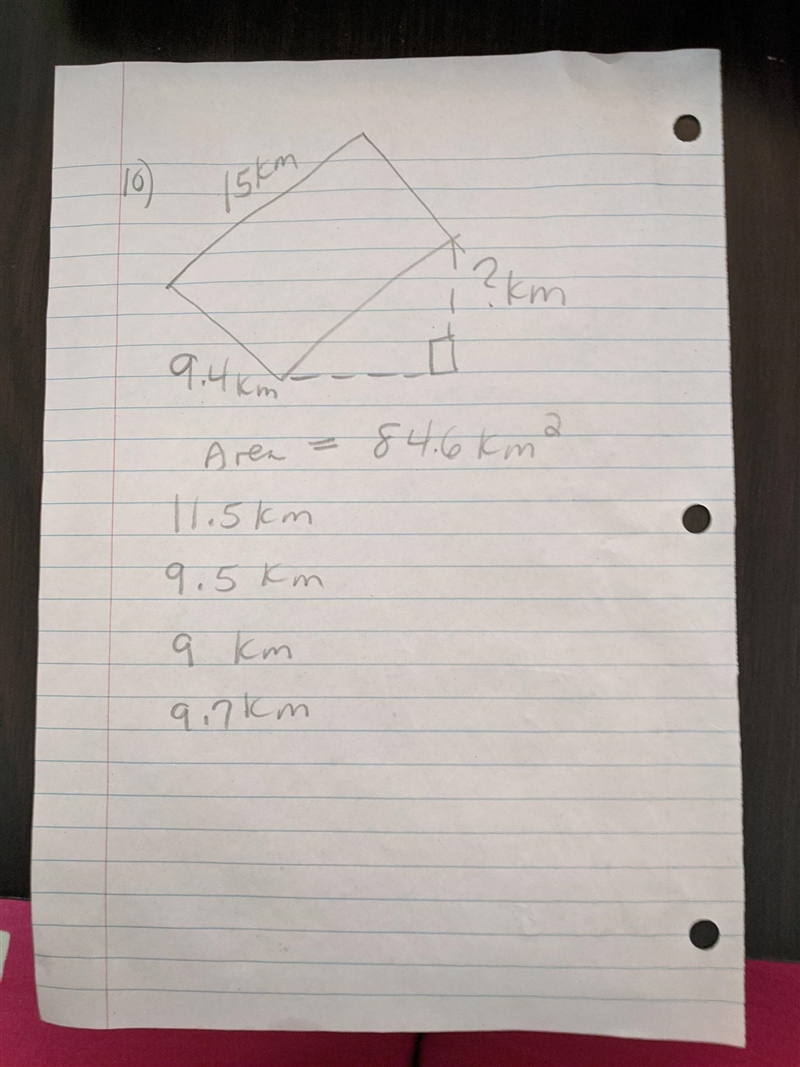 10)
15km
? km
9.4km
Area = 84.6 km²
11.5 km
9.5 km
9 km
9.7 km